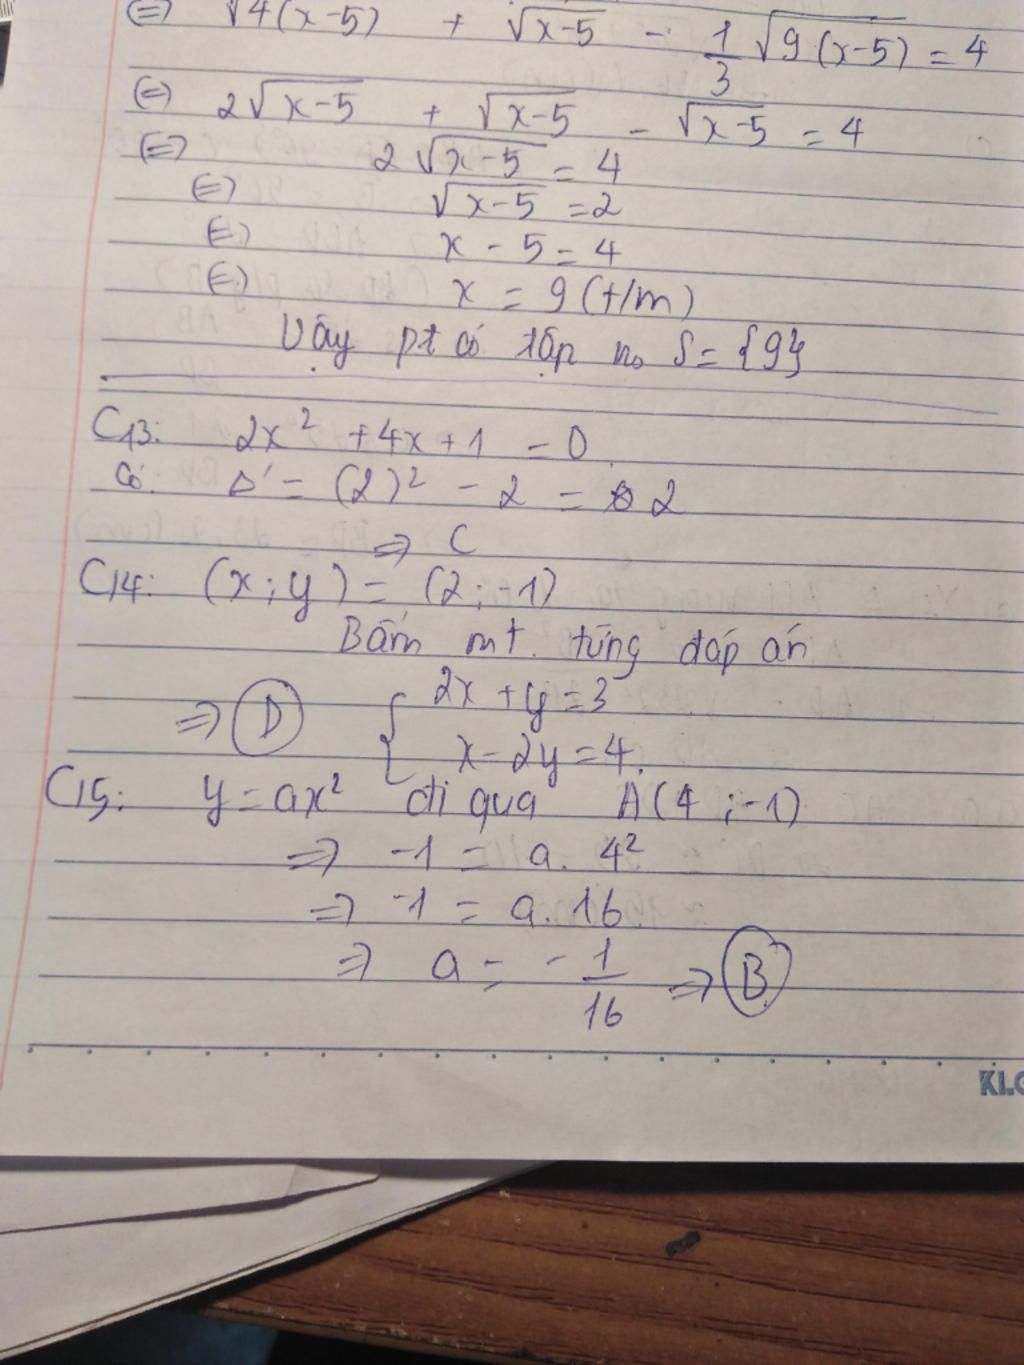 (=) √4(x-5) + √x-5 - 1/3 √9(x-5) = 4
(=) 2√x-5 + √x-5 - √x-5 = 4
(=) 2√x-5 = 4
(=) √x-5 = 2
(=) x - 5 = 4
(=) x = 9 (t/m)
Vậy pt có tập no S = {9}
C13: 2x² + 4x + 1 = 0
Có: Δ' = (2)² - 2 = 2
=> C
C14: (x; y) = (2; -1)
Bấm mt. từng đáp án
=> D { 2x + y = 3
x - 2y = 4.
C15: y = ax² đi qua A(4; -1)
=> -1 = a. 4²
=> -1 = a. 16
=> a = - 1/16 => B